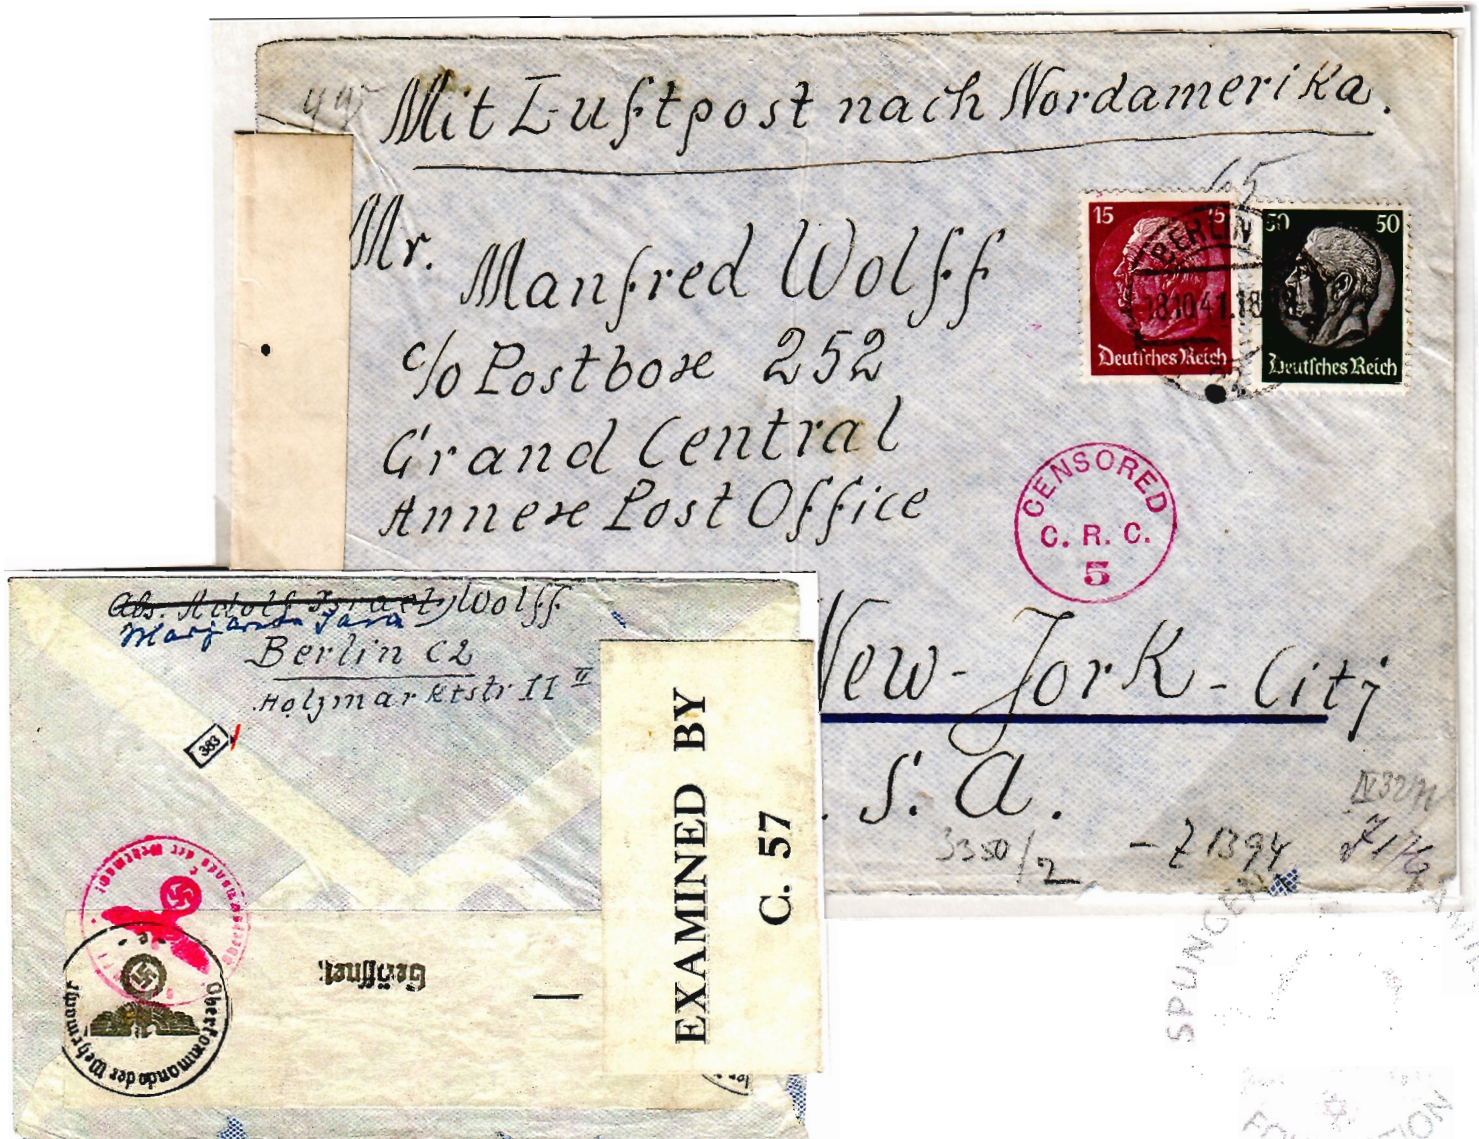 Mit Luftpost nach Nordamerika.
Mr. Manfred Wolff
c/o Postboxe 252
Grand Central
Annexe Post Office
New-York-City
.S.A.
65
15 15
Deutsches Reich
50 50
Deutsches Reich
BERLIN
18.10.41.18
CENSORED
C. R. C.
5
3350/2 - Z 1394
Abs. Adolf Israel Wolff
Sara
Berlin C2
Holzmarktstr 11 II
383
EXAMINED BY
C. 57
Geöffnet
Oberkommando der Wehrmacht
Oberkommando der Wehrmacht
SPUNGEN